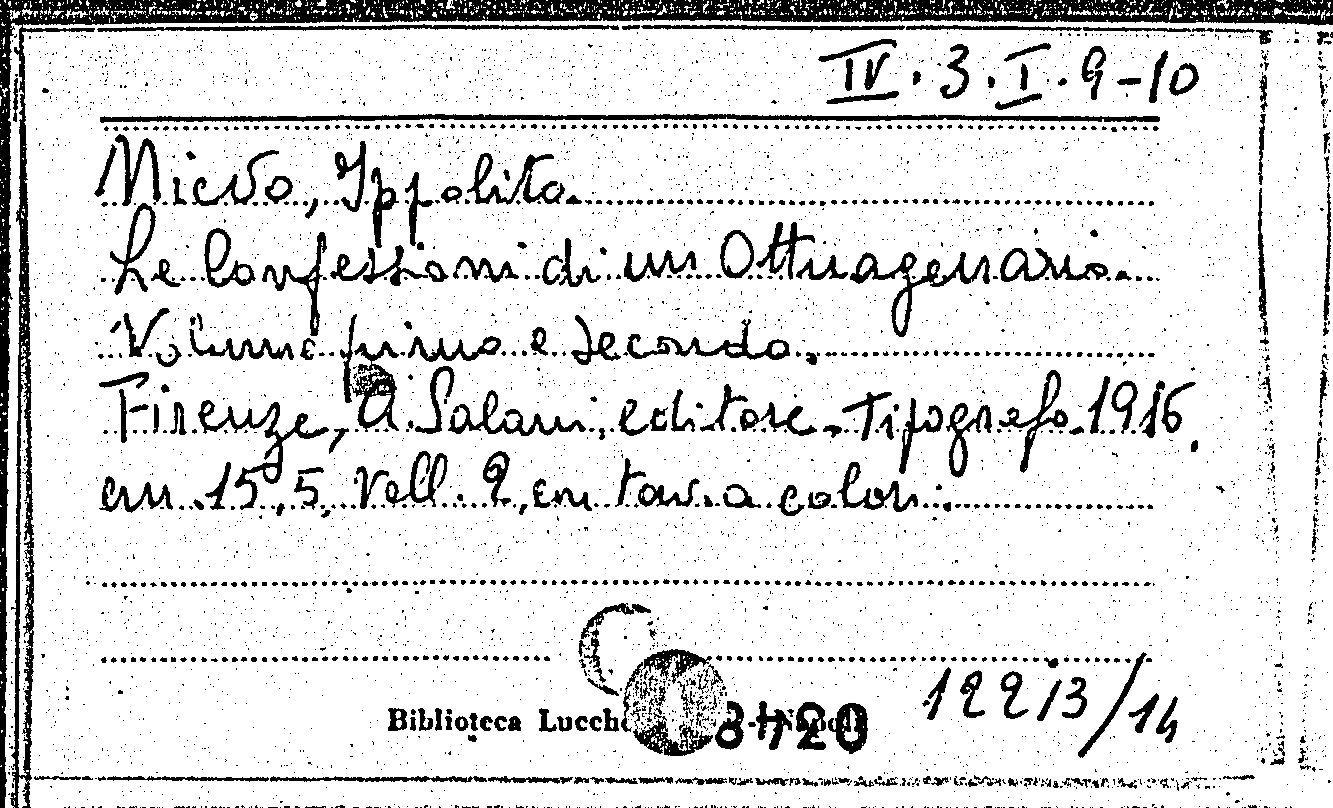 IV. 3. I. 9-10
Nievo, Ippolito.
Le Confessioni di un Ottuagenario.
Volume primo e secondo.
Firenze, A. Salani, editore. Tipografo. 1916.
cm. 15,5, Voll. 2, con tav. a colori.
Biblioteca
8420
12213/14